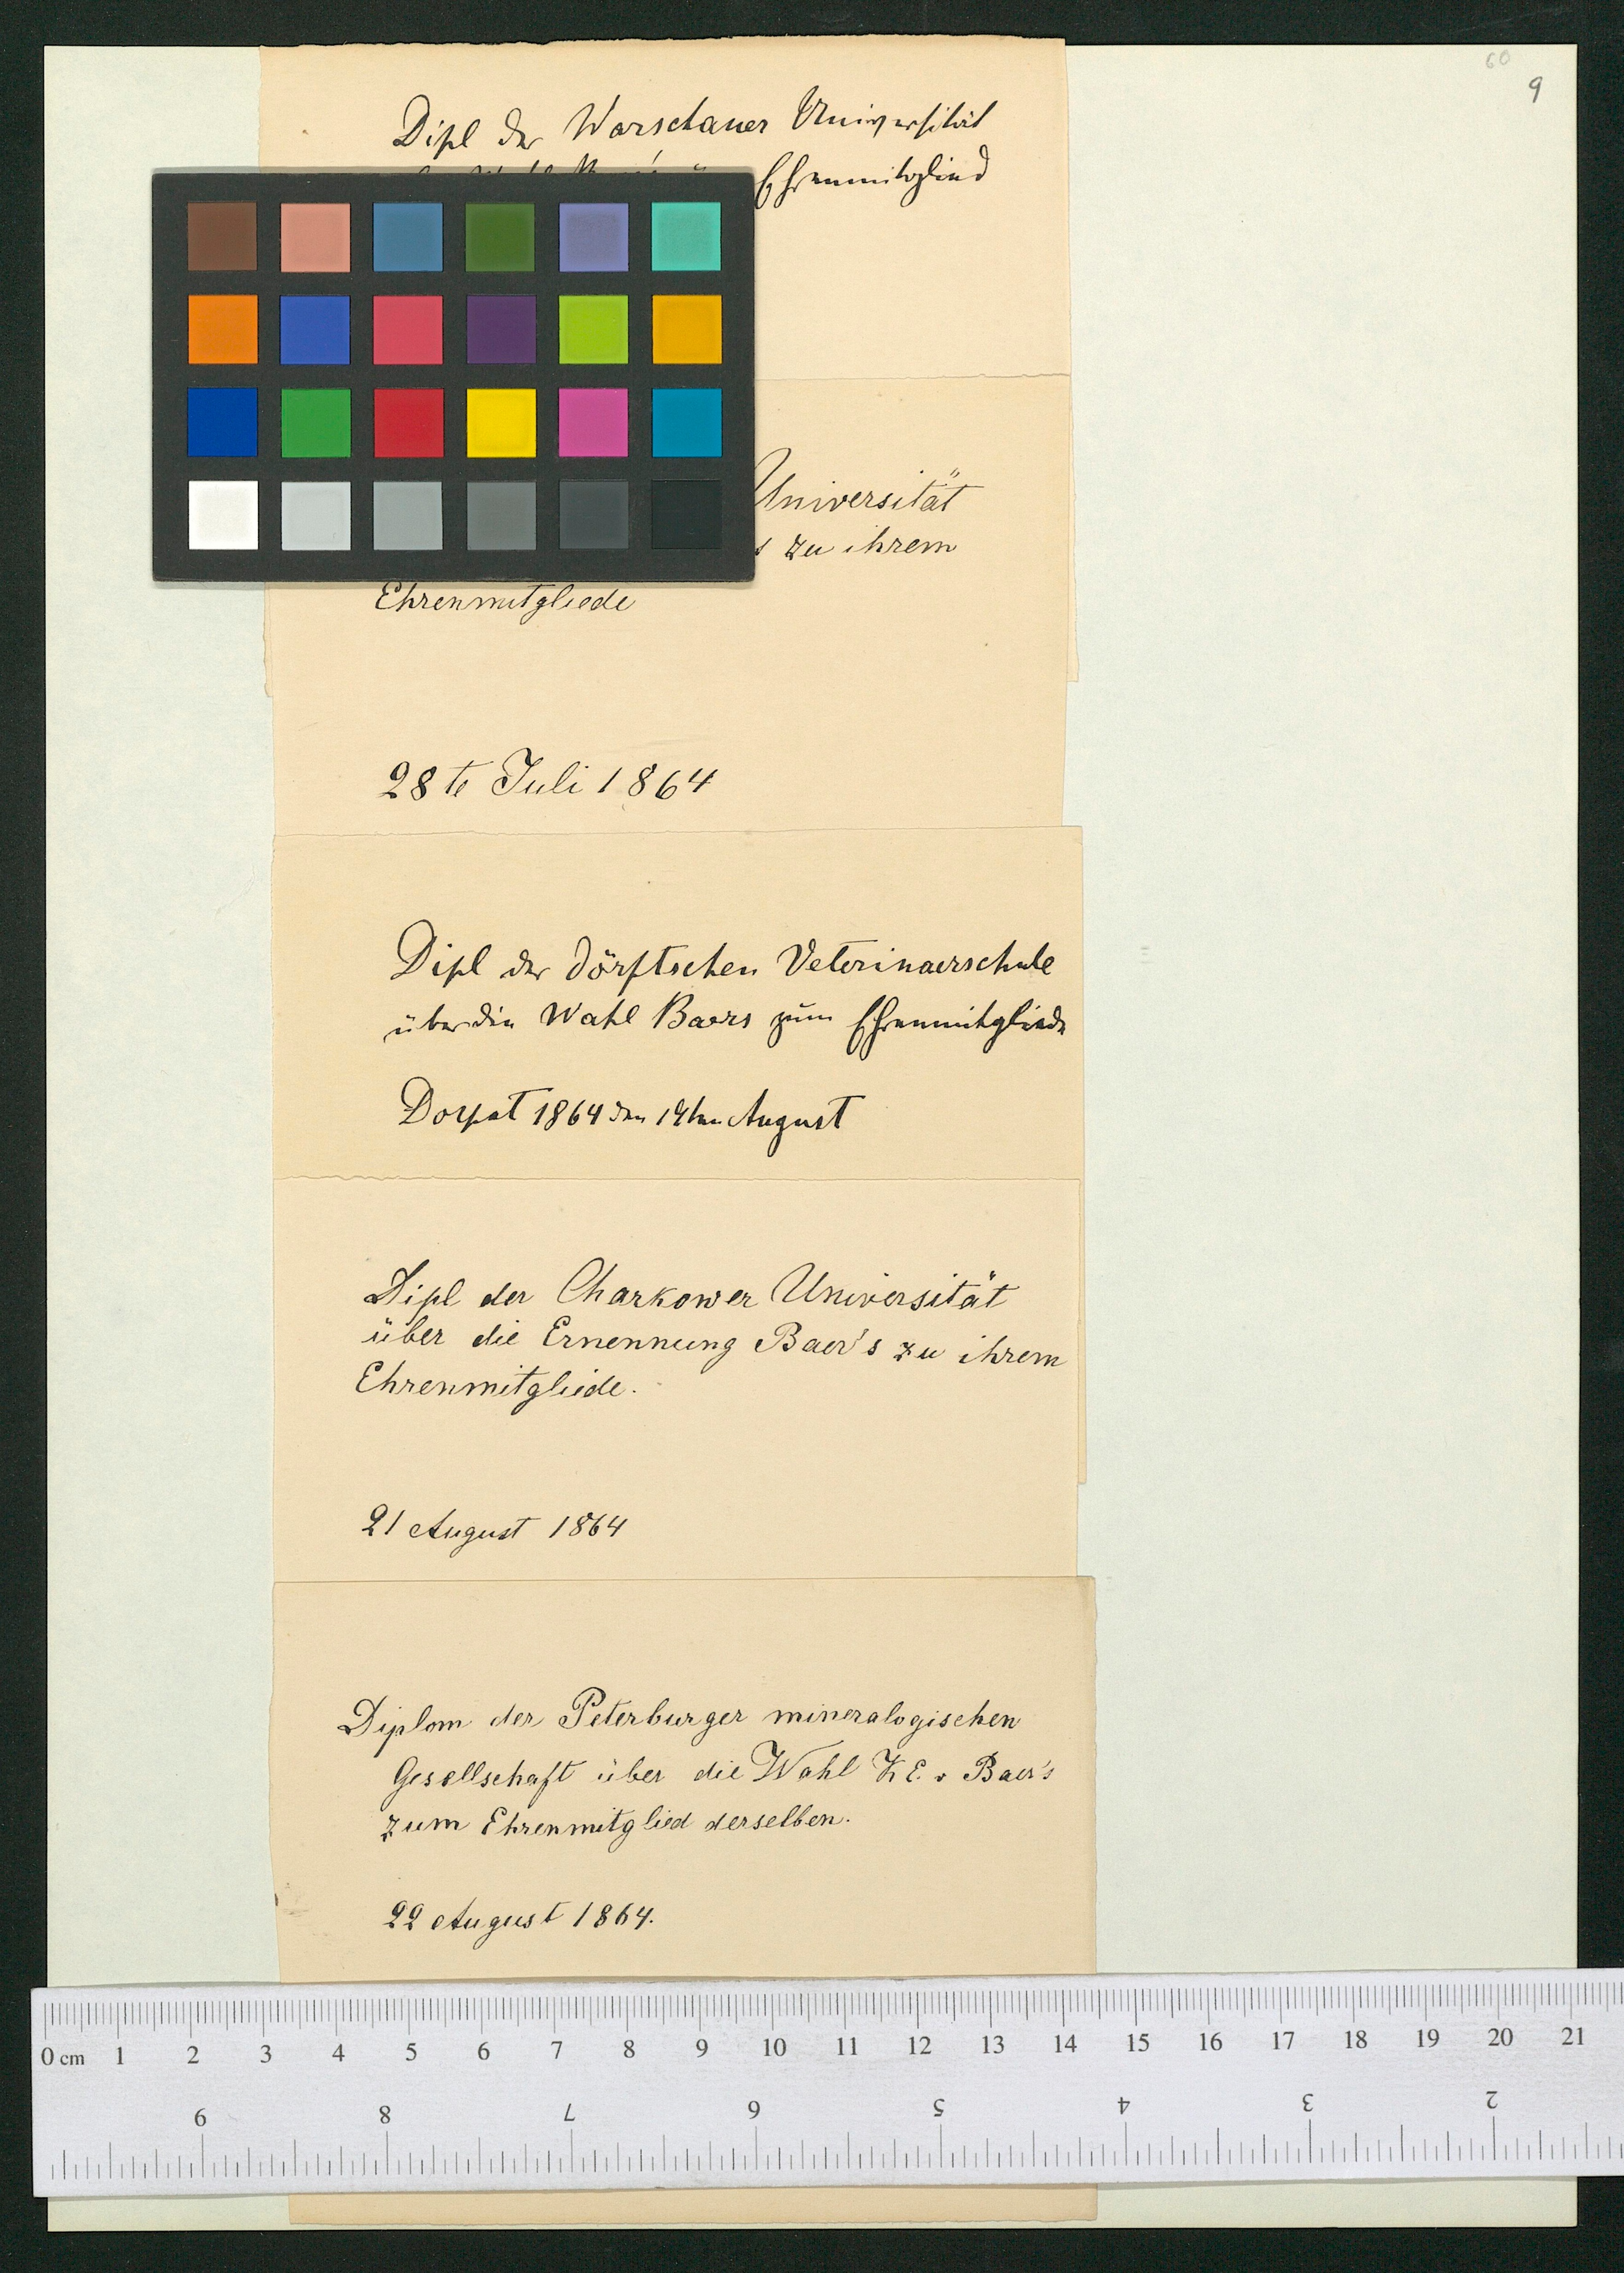 60
9
Dipl der Warschauer Universität
Ehrenmitglied
Universität
zu ihrem
Ehrenmitgliede
28te Juli 1864
Dipl der Dörptschen Veterinaerschule
über die Wahl Baers zum Ehrenmitgliede
Dorpat 1864 den 14ten August
Dipl der Charkower Universität
über die Ernennung Baer's zu ihrem
Ehrenmitgliede.
21 August 1864
Diplom der Peterburger mineralogischen
Gesellschaft über die Wahl K E. v Baer's
zum Ehrenmitglied derselben.
22 August 1864.
0 cm 1 2 3 4 5 6 7 8 9 10 11 12 13 14 15 16 17 18 19 20 21
9 8 7 6 5 4 3 2